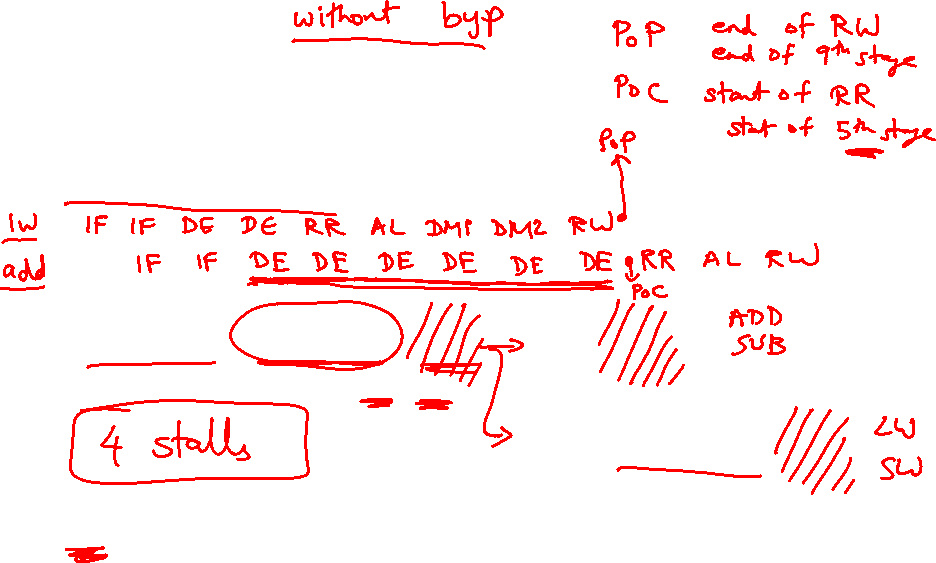 without byp
PoP end of RW
end of 9th stage
PoC start of RR
start of 5th stage
PoP
lw IF IF DE DE RR AL DM1 DM2 RW
add IF IF DE DE DE DE DE DE RR AL RW
PoC
ADD
SUB
4 stalls
LW
SW